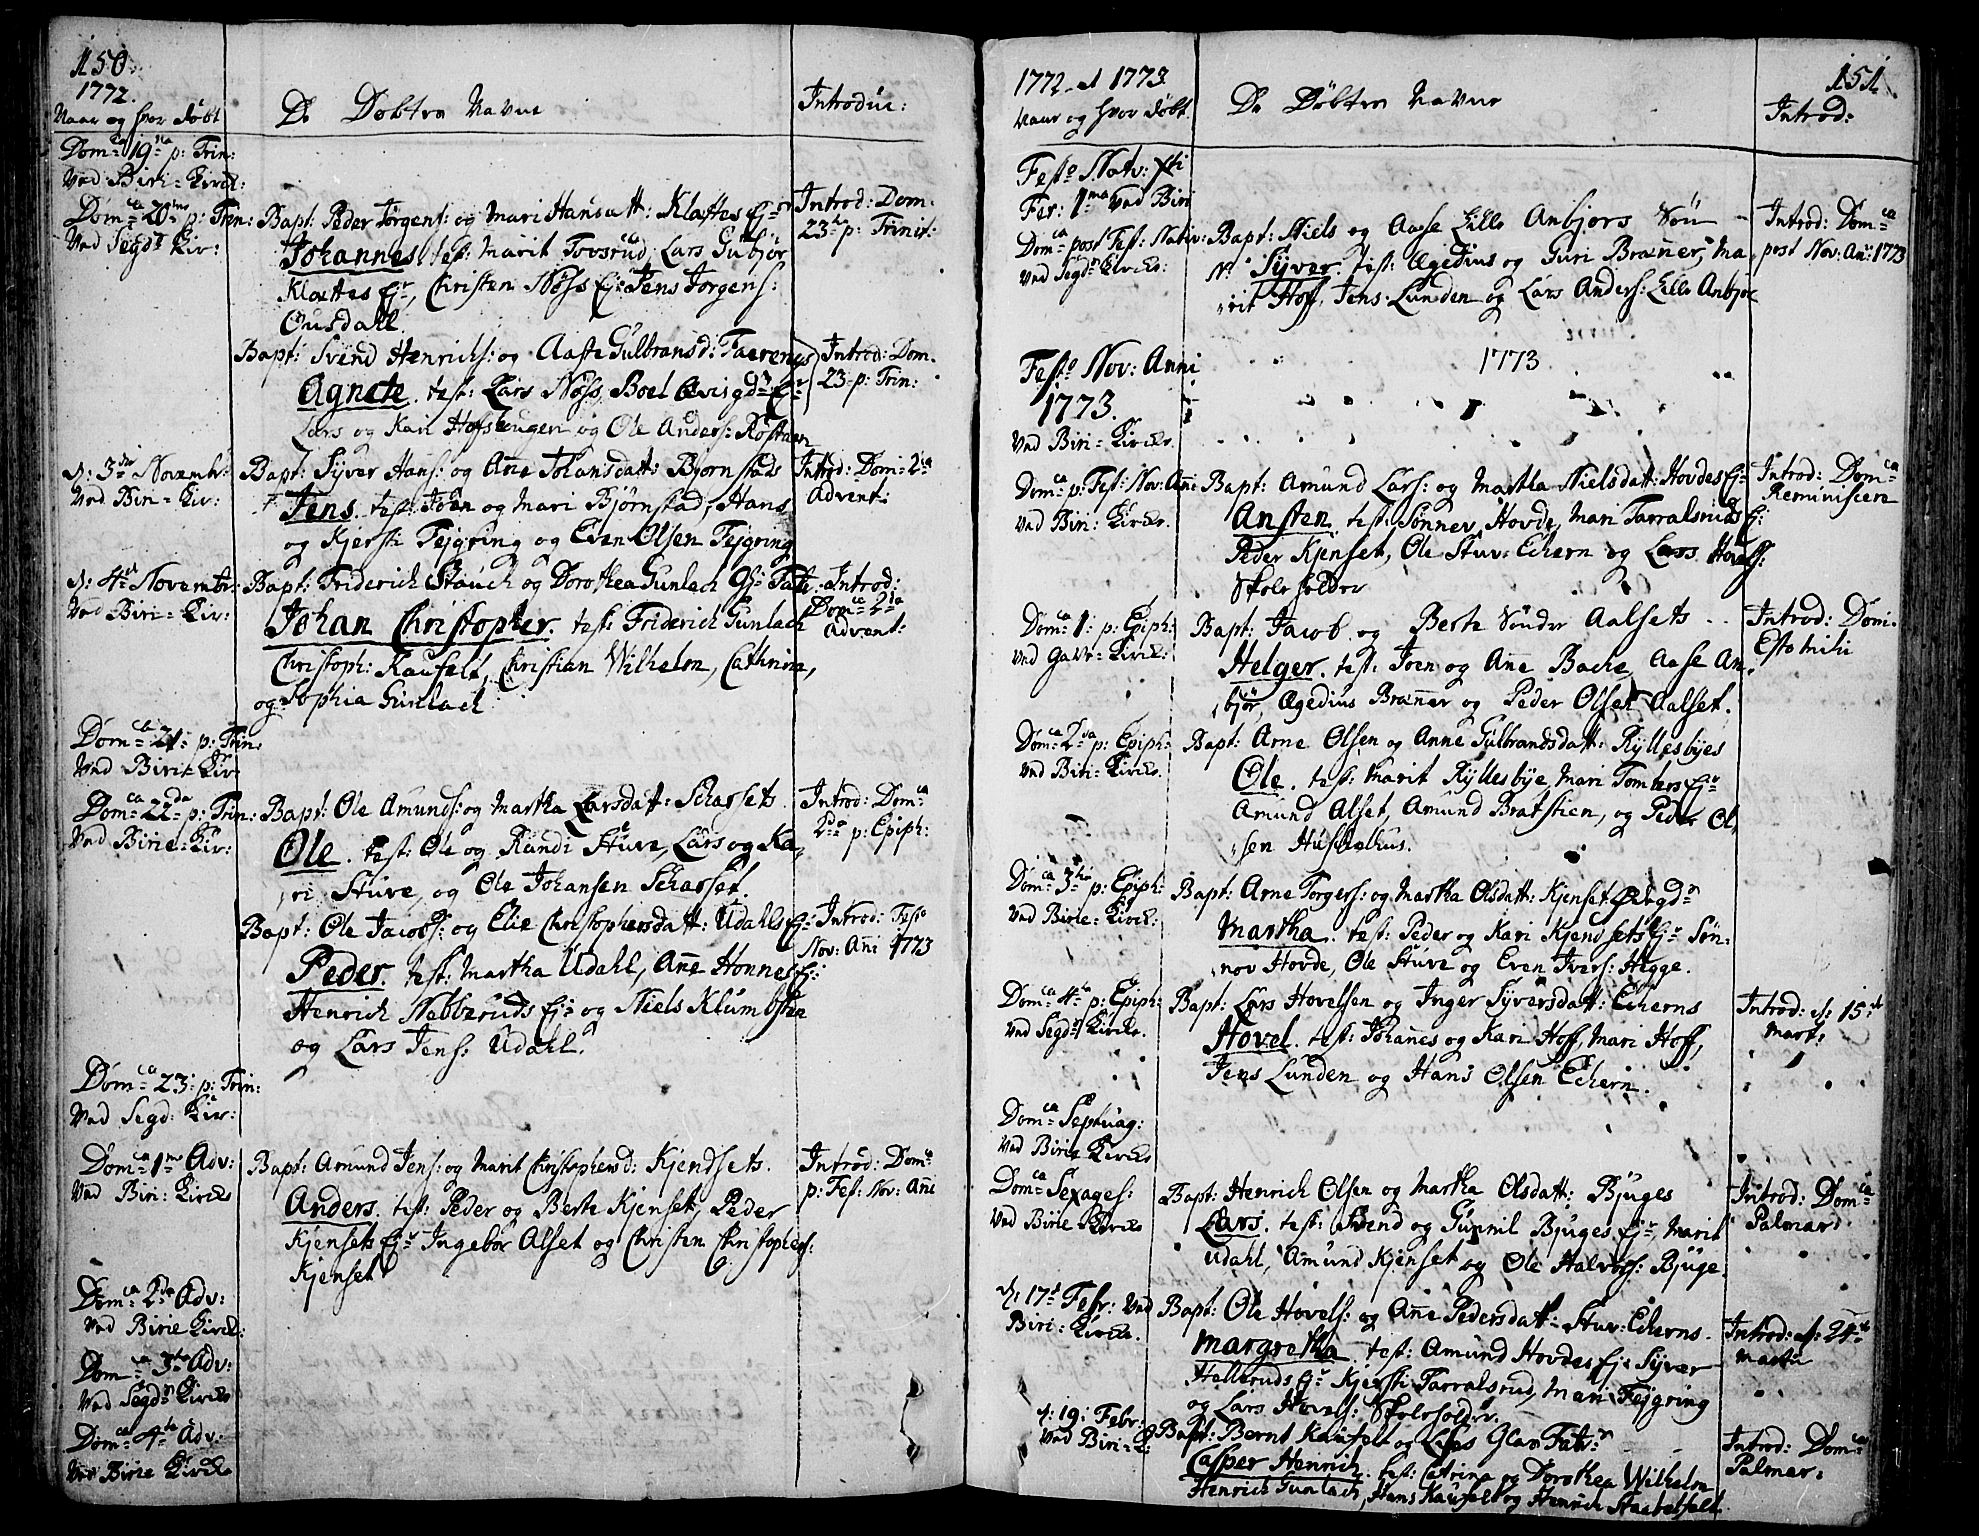 150.
1772.
Naar og hvor døbt
De Døbtes Navne
Introduc:
Dom:ca 19:na p: Trin:
Ved Biri = Kirck:
Dom:ca 20:ma p: Trin:
Ved Segd:s Kir:
Bapt: Peder Jørgens: og Mari Hansdatt: Klættes Ej:r
Johannes, test: Marit Tovsrud, Lars Gubjør
Klættes Ej:r, Christen Nøss Ej: Jens Jørgens:
Ousdahl.
Introd: Dom.
23:tia p: Trinit:
Bapt: Svend Henrichs: og Aaste Gulbransd:
Agnete. test: Lars Nøss, Boel
Lars og Kari Hofshaugen og Ole Anders: Røstuen
Introd: Dom.
23 p: Trin:
d: 3:die Novembr:
Ved Biri = Kir:
Bapt: Syver Hans: og Ane Johansdatt: Bjørnstads
Jens. test: Joen og Mari Bjørnstad, Hans
og Kjersti Fejgring og Even Olsen Fejgring
Introd: Dom: 2:da
Advent:
d: 4:de Novembr:
Ved Biri = Kir:
Bapt: Friderich Stauch og Dorothea Gunlach
Johan Christopher. test: Friderich Gunlach
Christoph: Kaufelt, Christian Wilhelm, Cathrina,
og Sophia Gunlach
Introd:
Dom:ca 2:da
Advent:
Dom:ca 21: p: Trin:
Ved Birie Kir:
Dom:ca 22:da p: Trin:
Ved Birie = Kir:
Bapt: Ole Amunds: og Martha Larsdatt: Scharsets
Ole. test: Ole og Rundi Stuve, Lars og Ka,
,ri Stuve, og Ole Johansen Scharset.
Introd: Dom:ca
2:da p: Epiph:
Bapt: Ole Jacobs: og Elie Christophersdatt: Udahls Ej:
Peder. test: Martha Udahl, Ane Honnes Ej:
Henrich Nebberuds Ej: og Niels Klumbsten
og Lars Jens: Udahl.
Introd: Festo
Nov: Ani 1773
Dom:ca 23: p: Trin:
Ved Segd: Kir:
Dom:ca 1:ma Adv:
Ved Biri: Kircke
Bapt: Amund Jens: og Marit Christophersd: Kjendsets.
Anders. test: Peder og Berte Kjenset, Peder
Kjensets Ej:r Ingebor Alset og Christen Christophers:
Kjenset
Introd: Dom:ca
p: Fes: Nov: Ani
Dom:ca 2:da Adv:
Ved Birie Kirck:
Dom:ca 3:tia Adv:
Ved Segd:s Kircke
Dom:ca 4:ta Adv:
Ved Birie Kircke
1772 et 1773
151.
Naar og hvor døbt.
De Døbtes Navne
Introd:
Festo Nativ: Xti
Fer: 1:ma Ved Biri
Dom:ca post Fest: Nativ:
Ved Segd:s Kircke:
Bapt: Niels og Aase Lille Anbjørs Søn
N: Syver. test: Ægedius og Guri Braner, Ma,
,rit Hoff, Jens Lunden og Lars Anders: Lille Anbjør
Introd: Dom:ca
post Nov: An: 1773
Festo Nov: Anni
1773.
Ved Biri = Kircke.
1773
Dom:ca p: Fest: Nov: Ani
Ved Biri: Kircke.
Bapt: Amund Lars: og Martha Nielsdatt: Hovdes Ej:
Ansten. test: Sønnev Hovde, Mari Tarralsruds Ej:
Peder Kjenset, Ole Stuv: Echern og Lars
Skoleholder
Introd: Dom:ca
Reminiscere
Dom:ca 1: p: Epiph:
Ved Gave = Kirck:
Bapt: Jacob og Berte Sønder Aalsets
Helger. test: Joen og Ane Bache, Aase An,
,bjør, Ægedius Braner og Peder Olsen Aalset.
Introd: Dom.
Estomihi
Dom:ca 2:da p: Epiph:
Ved Biri = Kircke.
Bapt: Arne Olsen og Anne Gulbrandsdatt: Ryllesbyes
Ole. test: Marit Ryllesbye, Mari Tomters Ej:r
Amund Alset, Amund Bratstien, og Peder Ol,
,sen Huschelhus.
Dom:ca 3:tia p: Epiph:
Ved Birie = Kirck:
Bapt: Arne Torgers: og Martha Olsdatt: Kjenset
Martha. test: Peder og Kari Kjendsets Ej:r Søn,
,nov Hovde, Ole Stuve og Even Ivers: Hegge.
Dom:ca 4:ta p: Epiph:
Ved Segd:s Kircke.
Bapt: Lars Hovelsen og Inger Syversdatt: Echerns
Hovel. test: Johanes og Kari Hoff, Mari Hoff,
Jens Lunden og Hans Olsen Echern.
Introd: d: 15:de
Mart:
Dom:ca Septuag:
Ved Birie Kircke
Dom:ca Sexages:
Ved Birie Kircke
Bapt: Henrich Olsen og Martha Olsdatt: Bjuges
Lars. test: Svend og Gunnil Bjuges Ej:r, Marit
Udahl, Amund Kjenset og Ole Halvors: Bjuge.
Introd: Dom:ca
Palmar:
d: 17:de Febr: Ved
Biri: Kircke.
Bapt: Ole Hovels: og Ane Pedersdatt: Stuv: Echerns.
Margretha. test: Amund Hovdes Ej: Syver
Helleruds Ej:r Kjersti Tarralsrud, Mari Fejgring
og Lars Hovels: Skoleholder.
Introd: d: 24:de
Martii
d: 19: Febr:
Ved Biri = K:
Bapt: Bernt Kaufelt og Lises Glas Fabr:n
Casper Henrich. test: Catrina og Dorothea Wilhelm
Henrich Gunlach, Hans Kaufelt og Henrich
Introd: Dom:ca
Palmar: